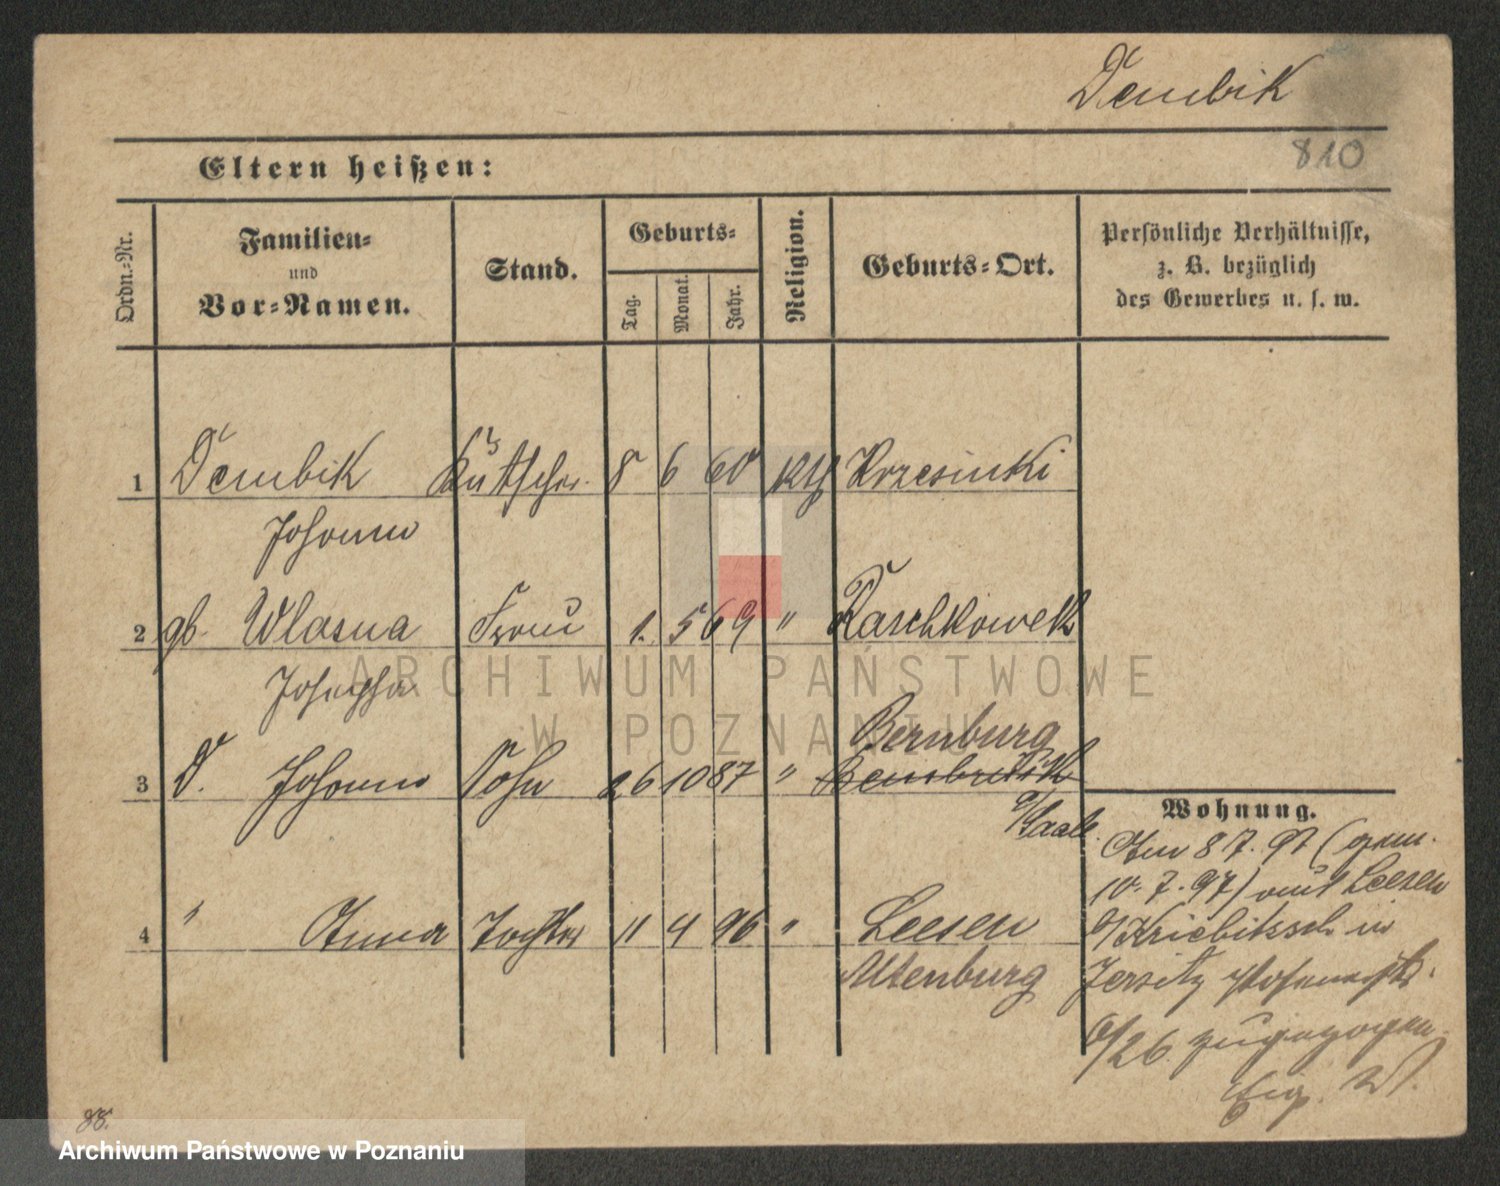 Dembik
810
Eltern heißen:
Ordn.-Nr.
Familien-
und
Vor-Namen.
Stand.
Geburts-
Tag.
Monat.
Jahr.
Religion.
Geburts-Ort.
Persönliche Verhältnisse,
z. B. bezüglich
des Gewerbes u. s. w.
1 Dembik Kutscher 8 6 60 kth Krzesinki
Johann
2 gb. Wlasna Frau 1. 5 69 " Raschkowek
Josepha
Bernburg
3 D. Johann Sohn 26 10 87 "
a/Saale.
4 " Anna Tochter 11 4 96 " Leesen
Altenburg
Wohnung.
Am 8 7. 97 (gem.
10. 7. 97) aus Leesen
b/Kriebitzsch in
Jersitz Posenerstr.
6/26. zugezogen.
Eig. W.
88.
ARCHIWUM PAŃSTWOWE
W POZNANIU
Archiwum Państwowe w Poznaniu